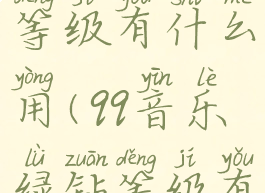 děng jí yǒu shí me
等级有什么
yòng yīn lè
用(99音乐
lǜ zuān děng jí yǒu
绿钻等级有